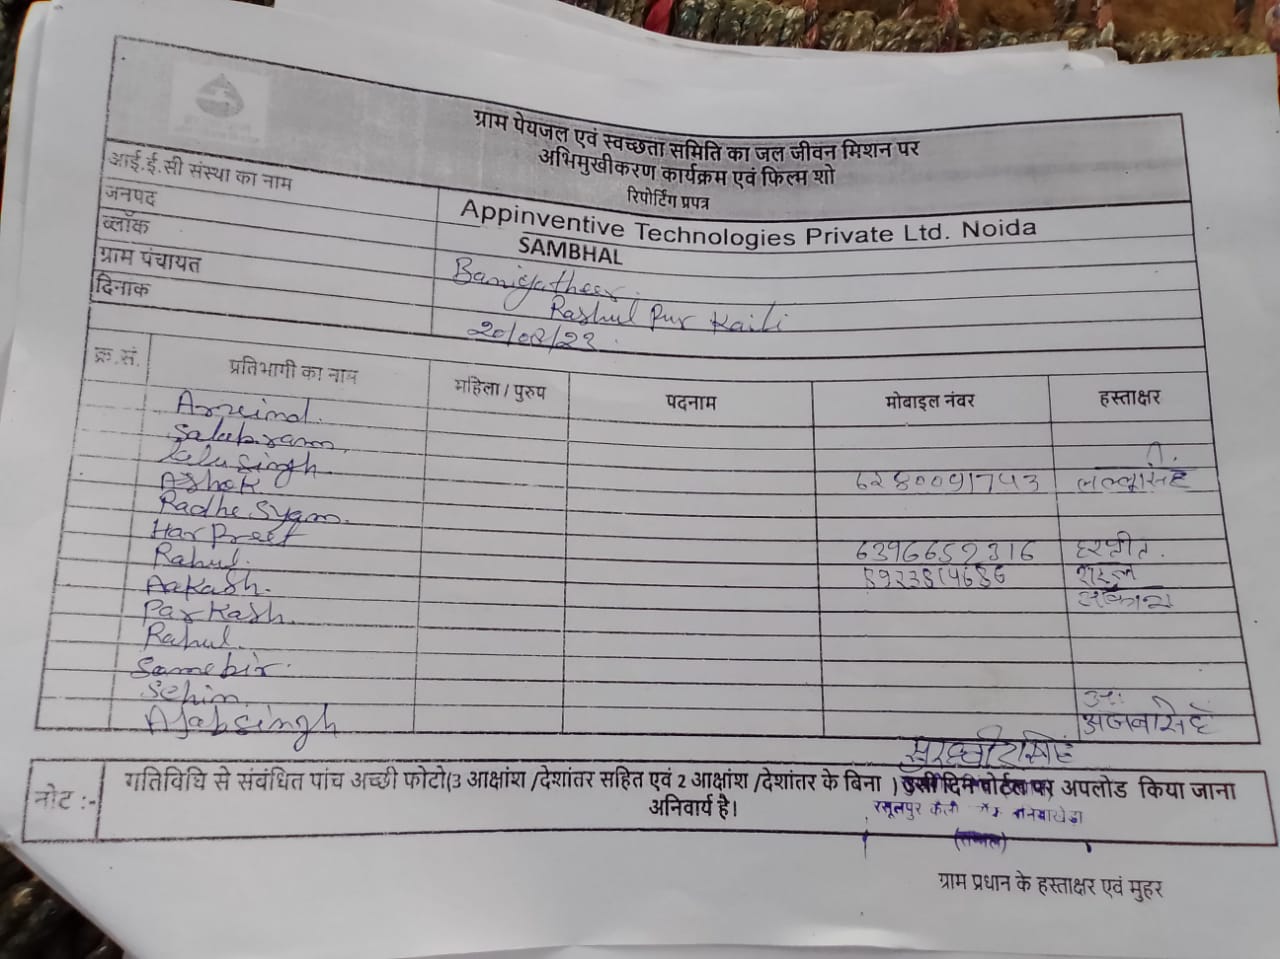 ग्राम पेयजल एवं स्वच्छता समिति का जल जीवन मिशन पर
अभिमुखीकरण कार्यक्रम एवं फिल्म शो
रिपोर्टिंग प्रपत्र
आई.ई.सी संस्था का नाम Appinventive Technologies Private Ltd. Noida
जनपद SAMBHAL
ब्लॉक
ग्राम पंचायत Rashul Pur Kaili
दिनाक 20/02/23
क्र.सं. प्रतिभागी का नाम महिला / पुरुष पदनाम मोबाइल नंबर हस्ताक्षर
Arveind.
Lalu Singh.
Ashok 6280091743 लल्लूसिंह
Radhe Syam.
Har Preet
Rahul. 6396652316 हरप्रीत.
Aakash. राहुल
Parkash.
Rahul.
Samebir.
Sehim
Ajab Singh अजबसिंह
नोट :- गतिविधि से संबंधित पांच अच्छी फोटो(3 आक्षांश /देशांतर सहित एवं 2 आक्षांश /देशांतर के बिना ) उसी दिन पोर्टल पर अपलोड किया जाना
अनिवार्य है।
रसूलपुर कैली
ग्राम प्रधान के हस्ताक्षर एवं मुहर